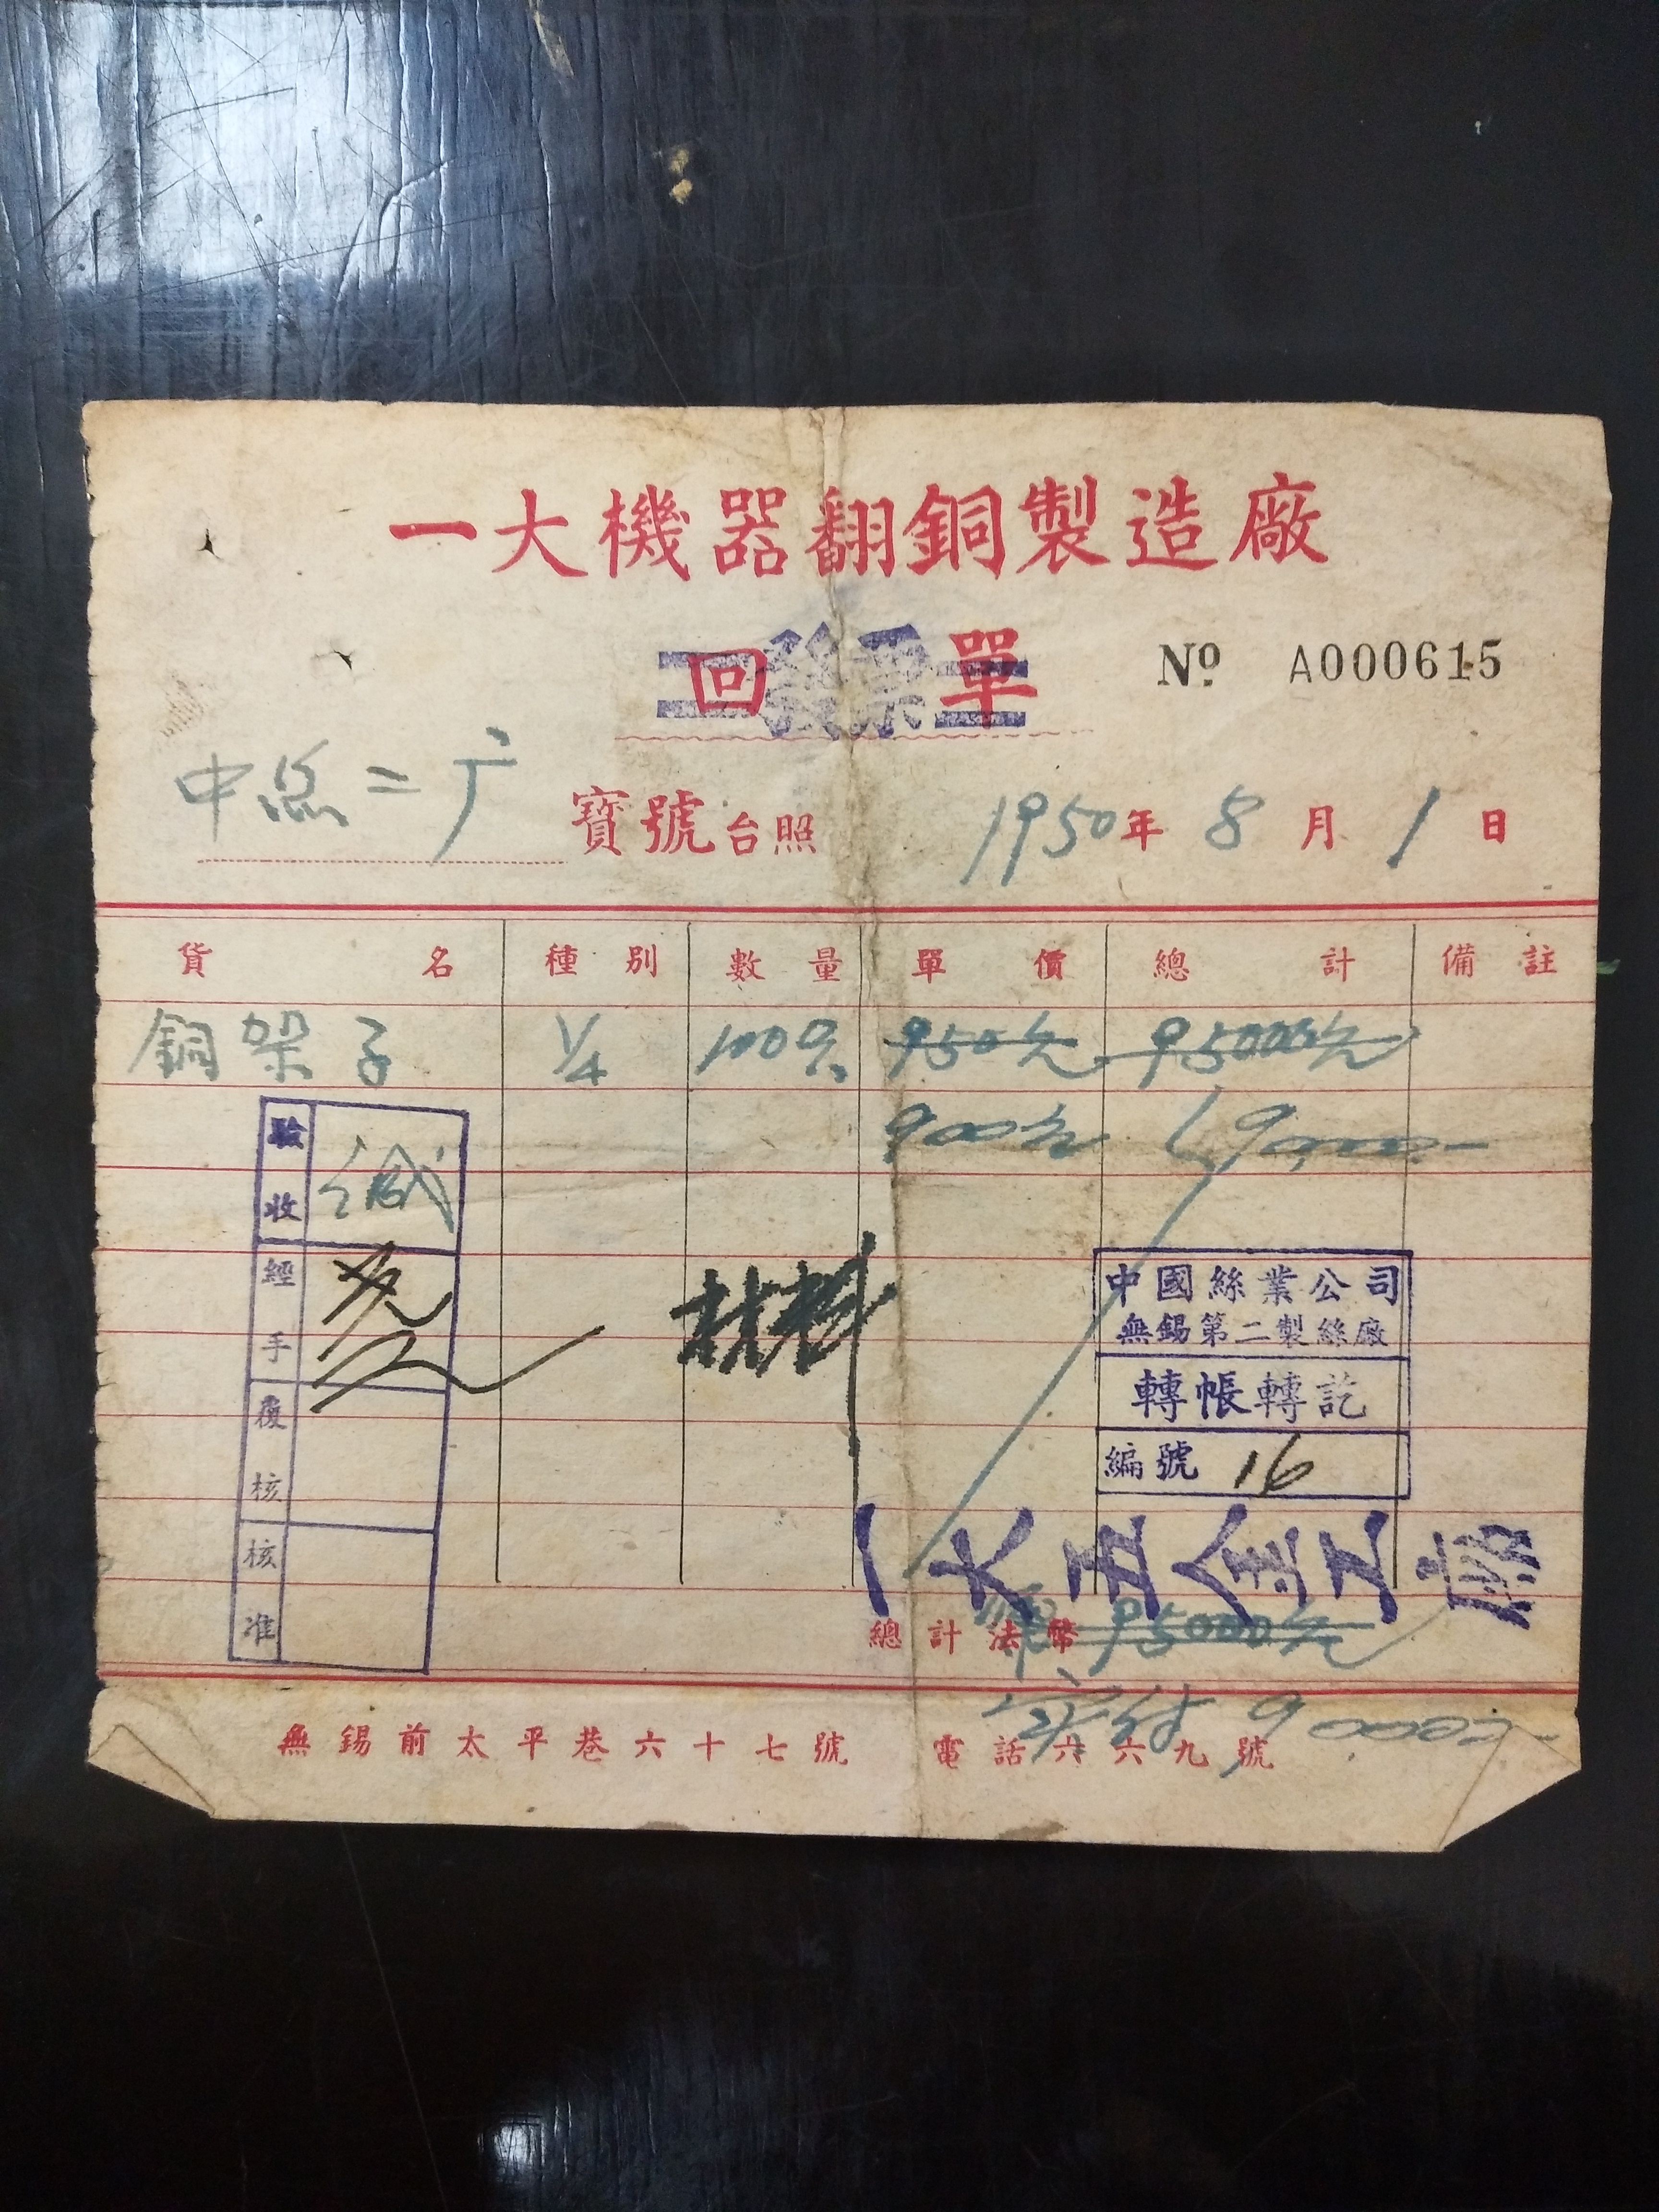 一大機器翻銅製造廠
回單
發票
No A000615
中絲二厂 寶號台照 1950年8月1日
貨名 種別 數量 單價 總計 備註
銅架子 1/4 100只 950元 95000元
900元 90,000.-
驗收
經手
覆核
核准
材料
中國絲業公司
無錫第二製絲廠
轉帳轉訖
編號 16
一大五金工廠
總計法幣 95000元
實付 90000.-
無錫前太平巷六十七號 電話六六九號